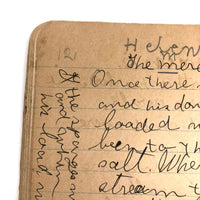 12
Helen
The merc
Once there
and his don
loaded
been to th
salt. Whe
stream t
If the
and
his load